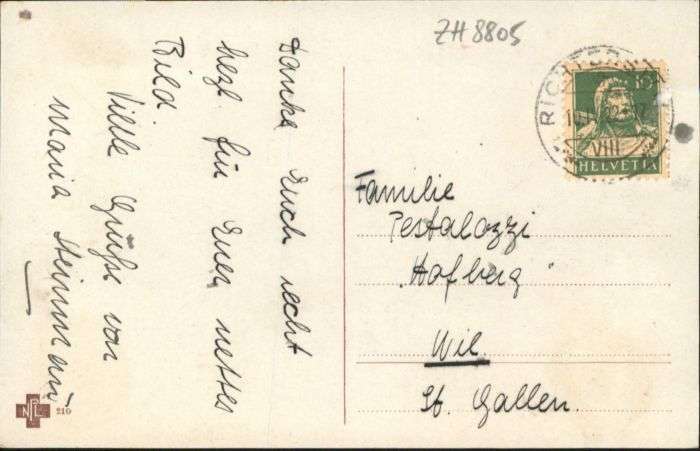 ZH 8805
Danke Euch recht
herzl. für Euer nettes
Bild.
Viele Grüsse von
Maria Steinmann
RICHTERSWIL
VIII
10
HELVETIA
Familie
Pestalozzi
"Hofberg"
Wil
St. Gallen.
NPL
210